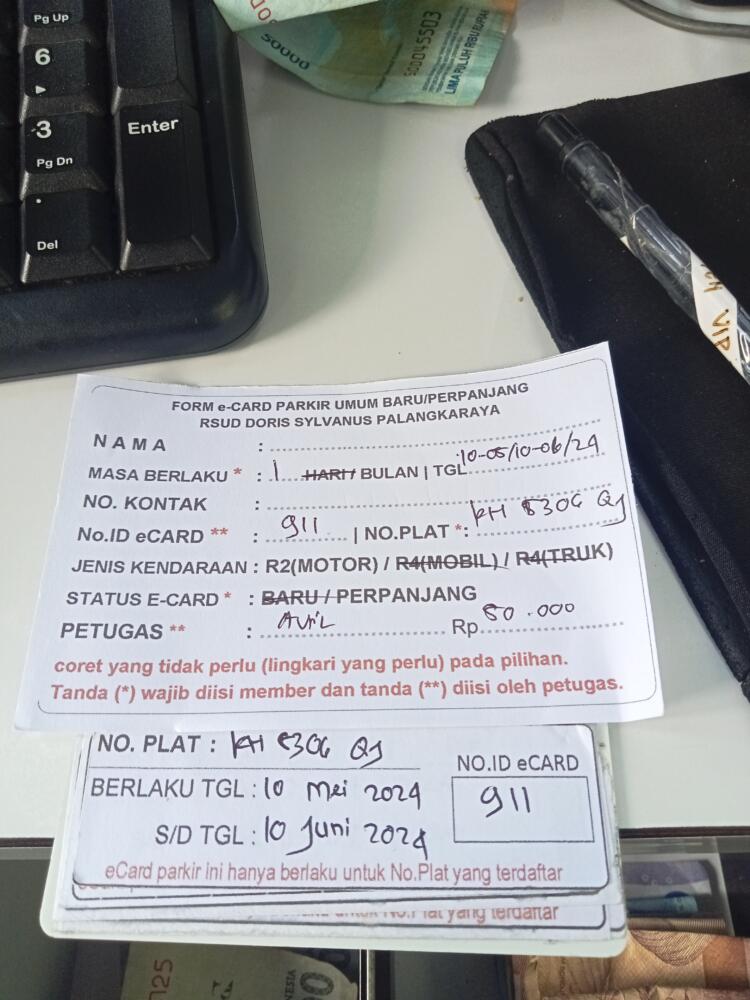 Pg Up
6
3
Pg Dn
Enter
Del
50000
500045503
LIMA PULUH RIBU RUPIAH
FORM e-CARD PARKIR UMUM BARU/PERPANJANG
RSUD DORIS SYLVANUS PALANGKARAYA
NAMA :
MASA BERLAKU * : 1 HARI / BULAN | TGL 10-05/10-06/24
NO. KONTAK :
No.ID eCARD ** : 911 | NO.PLAT *: KH 5306 QJ
JENIS KENDARAAN : R2(MOTOR) / R4(MOBIL) / R4(TRUK)
STATUS E-CARD * : BARU / PERPANJANG
PETUGAS ** : Avril Rp 50.000
coret yang tidak perlu (lingkari yang perlu) pada pilihan.
Tanda (*) wajib diisi member dan tanda (**) diisi oleh petugas.
NO. PLAT : KH 5306 QJ
NO.ID eCARD
BERLAKU TGL : 10 Mei 2024
911
S/D TGL : 10 Juni 2024
eCard parkir ini hanya berlaku untuk No.Plat yang terdaftar
untuk No.Plat yang terdaftar